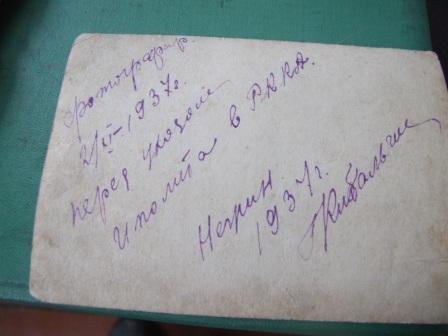 фотографир.
2/XI-1937г.
перед уходом
Иполита в РККА.
Нежин.
1937г.
Кибальчич